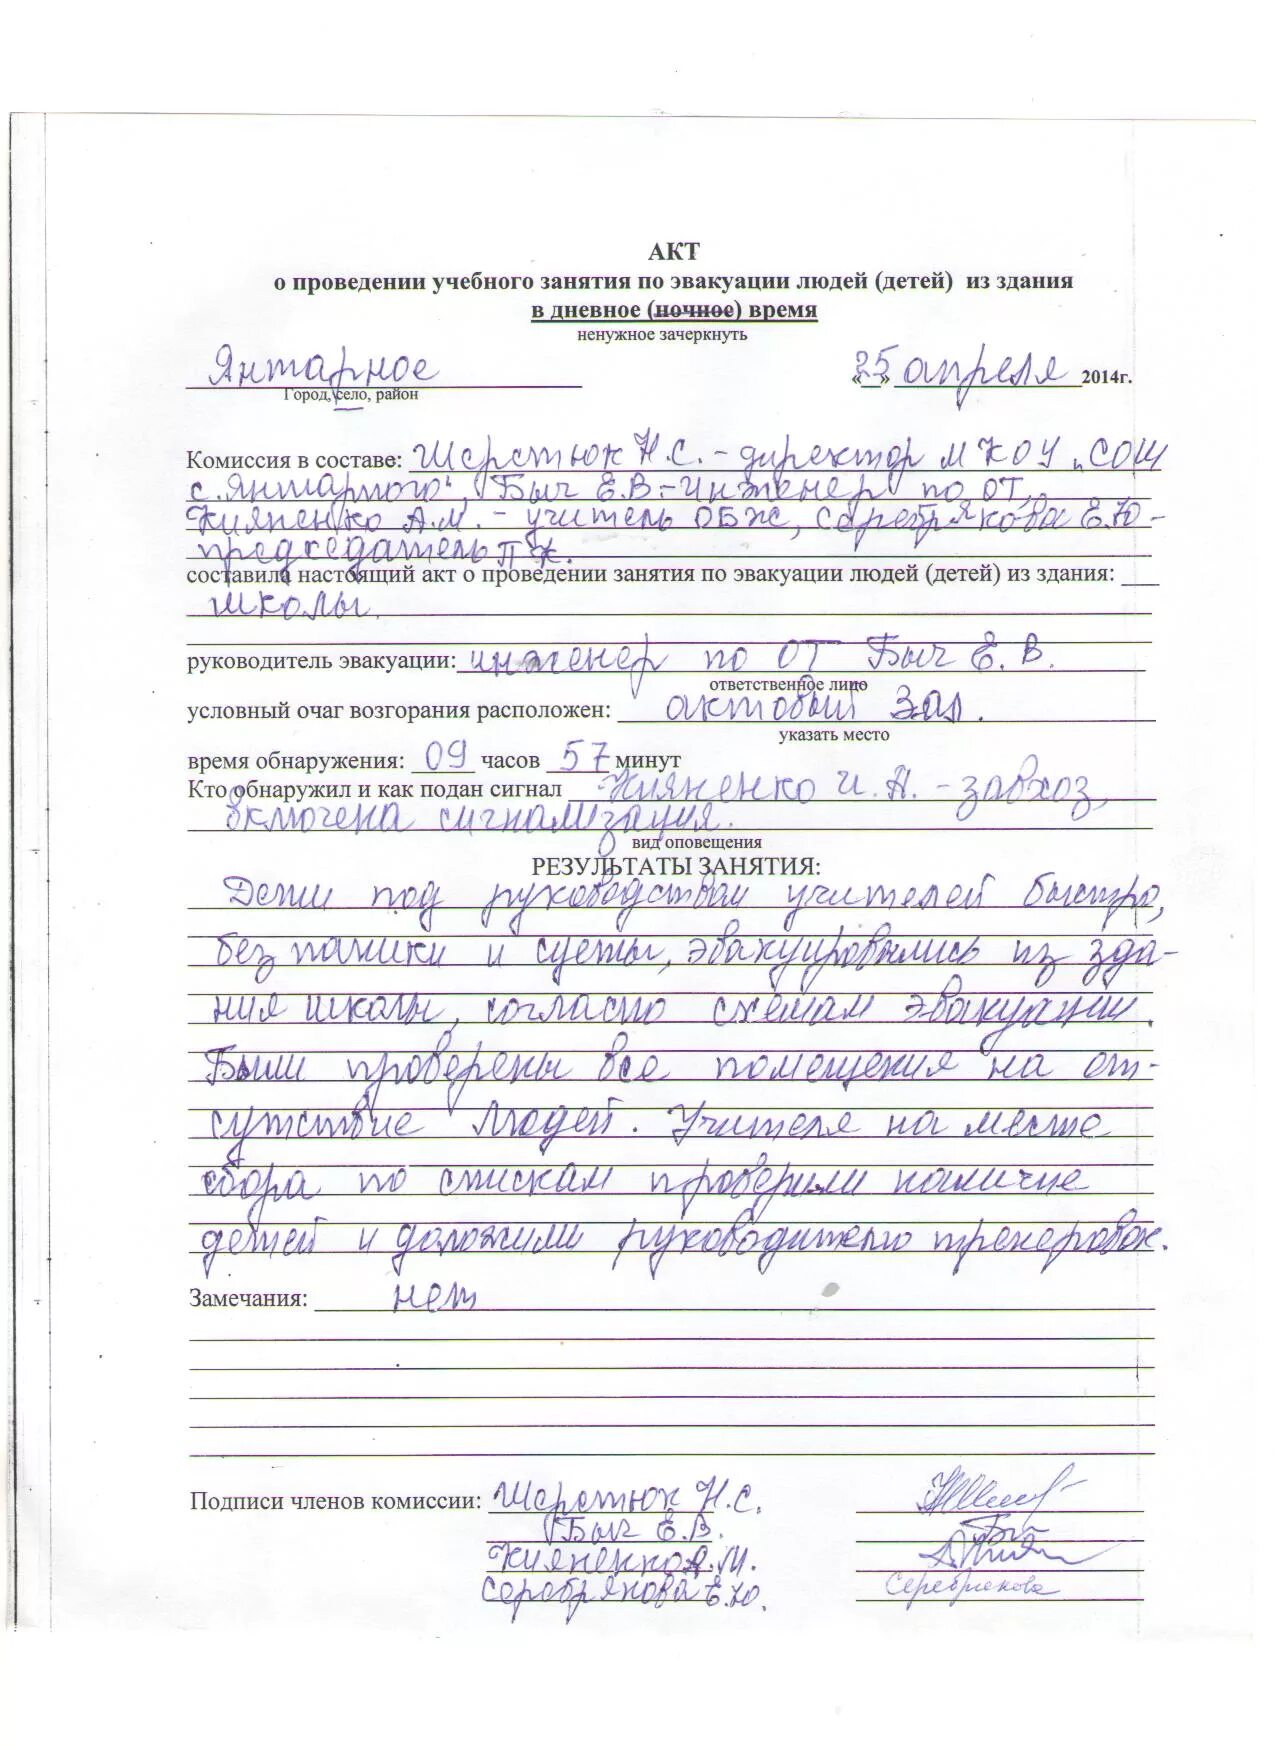 АКТ
о проведении учебного занятия по эвакуации людей (детей) из здания
в дневное (ночное) время
ненужное зачеркнуть
Янтарное «25» апреля 2014г.
Город, село, район
Комиссия в составе: Шерстюк Н.С. - директор МКОУ „СОШ
с. Янтарного", Быч Е.В. - инженер по ОТ,
Кияненко А.М. - учитель ОБЖ, Серебрякова Е.Ю -
председатель ПК.
составила настоящий акт о проведении занятия по эвакуации людей (детей) из здания:
школы.
руководитель эвакуации: инженер по ОТ Быч Е.В.
ответственное лицо
условный очаг возгорания расположен: актовый зал.
указать место
время обнаружения: 09 часов 57 минут
Кто обнаружил и как подан сигнал Кияненко И.А. - завхоз,
включена сигнализация.
вид оповещения
РЕЗУЛЬТАТЫ ЗАНЯТИЯ:
Дети под руководством учителей быстро,
без паники и суеты, эвакуировались из зда-
ния школы, согласно схемам эвакуации.
Были проверены все помещения на от-
сутствие людей. Учителя на месте
сбора по спискам проверили наличие
детей и доложили руководителю тренеровок.
Замечания: нет
Подписи членов комиссии: Шерстюк Н.С.
Быч Е.В.
Кияненко А.М.
Серебрякова Е.Ю. Серебрякова